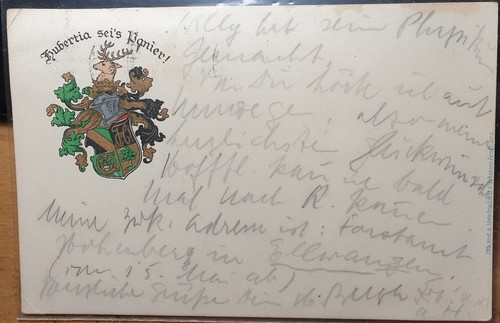 Hubertia sei's Panier!
Willy hat sein Physikum
gemacht.
Von Dir höre ich auf
Umwegen, also meine
herzlichste
Hoffl. kann ich bald
mal nach R. kommen.
Meine zuk. Adresse ist: Forstamt
Hohenberg in Ellwangen,
(vom 15. Mai ab)
Herzliche Grüße Dein